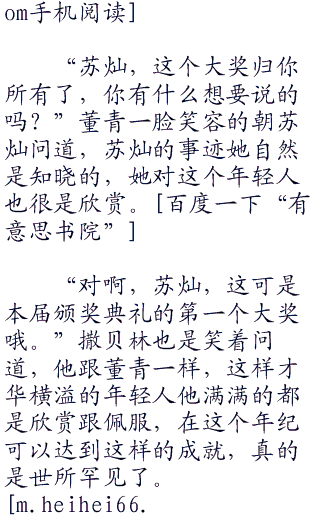 om手机阅读]
“苏灿，这个大奖归你
所有了，你有什么想要说的
吗？”董青一脸笑容的朝苏
灿问道，苏灿的事迹她自然
是知晓的，她对这个年轻人
也很是欣赏。[百度一下“有
意思书院”]
“对啊，苏灿，这可是
本届颁奖典礼的第一个大奖
哦。”撒贝林也是笑着问
道，他跟董青一样，这样才
华横溢的年轻人他满满的都
是欣赏跟佩服，在这个年纪
可以达到这样的成就，真的
是世所罕见了。
[m.heihei66.